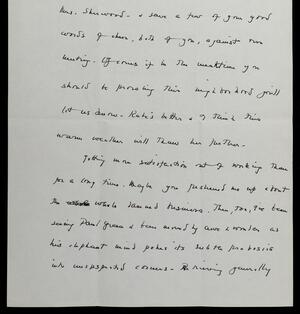 Mrs. Sherwood - & save a few of your good
words of cheer, both of you, against our
meeting. Of course if in the meantime you
should be prowling this neighborhood you'll
let us know - Kate's better & I think this
warm weather will thaw her further.
Getting more satisfaction out of working than
for a long time. Maybe you freshened me up about
the whole damned business. Then, too, I've been
seeing Paul Green & been moved by awe & wonder as
his elephant mind pokes its subtle proboscis
into unsuspected corners - thriving generally